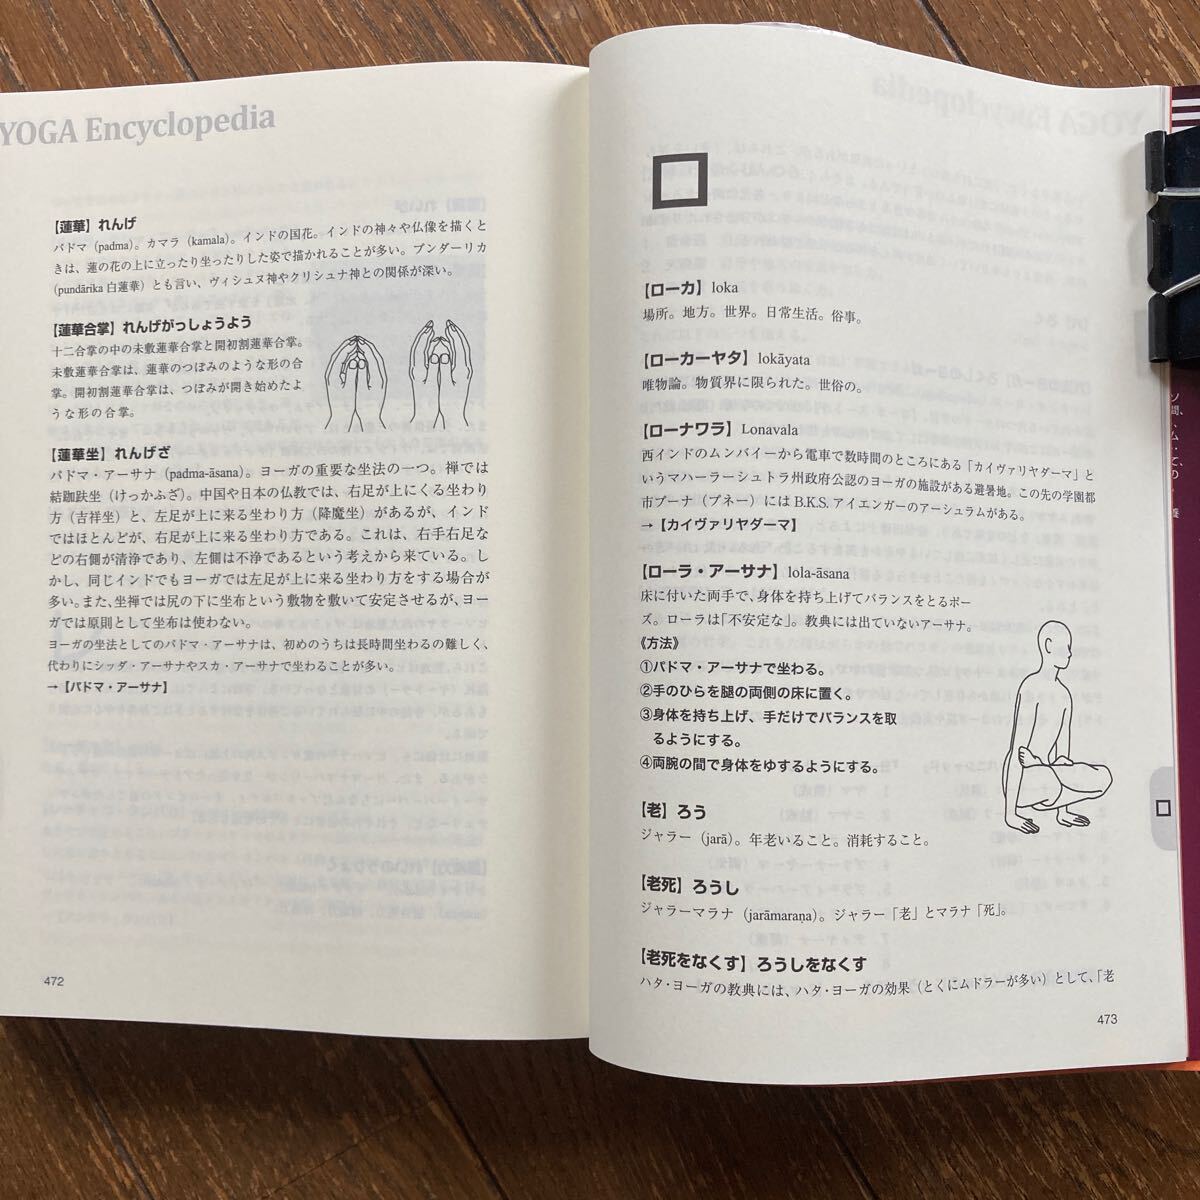 YOGA Encyclopedia
【蓮華】れんげ
パドマ（padma）。カマラ（kamala）。インドの国花。インドの神々や仏像を描くと
きは、蓮の花の上に立ったり坐ったりした姿で描かれることが多い。プンダーリカ
（pundārika 白蓮華）とも言い、ヴィシュヌ神やクリシュナ神との関係が深い。
【蓮華合掌】れんげがっしょうよう
十二合掌の中の未敷蓮華合掌と開初割蓮華合掌。
未敷蓮華合掌は、蓮華のつぼみのような形の合
掌。開初割蓮華合掌は、つぼみが開き始めたよ
うな形の合掌。
【蓮華坐】れんげざ
パドマ・アーサナ（padma-āsana）。ヨーガの重要な坐法の一つ。禅では
結跏趺坐（けっかふざ）。中国や日本の仏教では、右足が上にくる坐わり
方（吉祥坐）と、左足が上に来る坐わり方（降魔坐）があるが、インド
ではほとんどが、右足が上に来る坐わり方である。これは、右手右足な
どの右側が清浄であり、左側は不浄であるという考えから来ている。し
かし、同じインドでもヨーガでは左足が上に来る坐わり方をする場合が
多い。また、坐禅では尻の下に坐布という敷物を敷いて安定させるが、ヨー
ガでは原則として坐布は使わない。
ヨーガの坐法としてのパドマ・アーサナは、初めのうちは長時間坐わるの難しく、
代わりにシッダ・アーサナやスカ・アーサナで坐わることが多い。
→【パドマ・アーサナ】
472
ロ
【ローカ】loka
場所。地方。世界。日常生活。俗事。
【ローカーヤタ】lokāyata
唯物論。物質界に限られた。世俗の。
【ローナワラ】Lonavala
西インドのムンバイーから電車で数時間のところにある「カイヴァリヤダーマ」と
いうマハーラーシュトラ州政府公認のヨーガの施設がある避暑地。この先の学園都
市プーナ（プネー）には B.K.S. アイエンガーのアーシュラムがある。
→【カイヴァリヤダーマ】
【ローラ・アーサナ】lola-āsana
床に付いた両手で、身体を持ち上げてバランスをとるポー
ズ。ローラは「不安定な」。教典には出ていないアーサナ。
《方法》
①パドマ・アーサナで坐わる。
②手のひらを腿の両側の床に置く。
③身体を持ち上げ、手だけでバランスを取
るようにする。
④両腕の間で身体をゆするようにする。
【老】ろう
ジャラー（jarā）。年老いること。消耗すること。
【老死】ろうし
ジャラーマラナ（jarāmaraṇa）。ジャラー「老」とマラナ「死」。
【老死をなくす】ろうしをなくす
ハタ・ヨーガの教典には、ハタ・ヨーガの効果（とくにムドラーが多い）として、「老
ロ
473